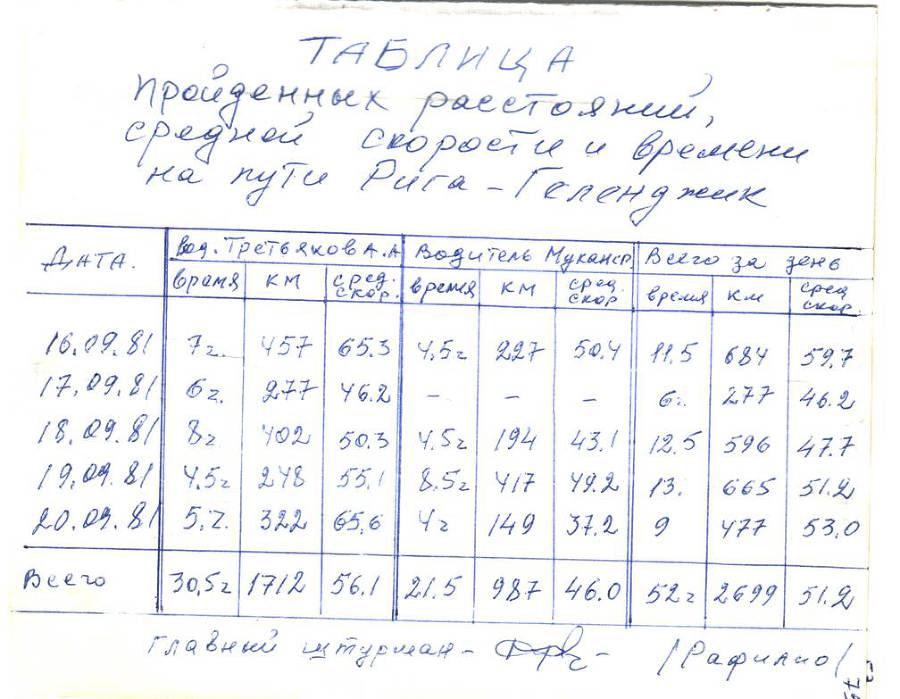 ТАБЛИЦА
пройденных расстояний,
средней скорости и времени
на пути Рига – Геленджик
ДАТА. Вод. Третьяков А.А Водитель Всего за день
время км сред. скор. время км сред. скор время км сред скор.
16.09.81 7ч. 457 65.3 4,5ч 227 50.4 11.5 684 59.7
17.09.81 6ч. 277 46.2 – – – 6ч. 277 46.2
18.09.81 8ч 402 50.3 4.5ч 194 43.1 12.5 596 47.7
19.09.81 4,5ч 248 55,1 8,5ч 417 49.2 13. 665 51.2
20.09.81 5.ч. 322 65,6 4ч 149 37.2 9 477 53,0
Всего 30,5ч 1712 56.1 21.5 987 46.0 52ч 2699 51.2
Главный штурман – – /Рафилио/